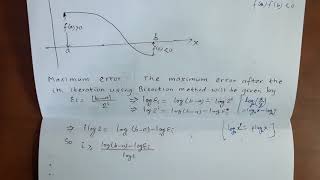 f(a) f(b) < 0
f(a)>0
b
a
f(b)<0
x
Maximum error : The maximum error after the
ith iteration using Bisection method will be given by
Ei = |b-a| / 2^i ⇒ log Ei = log(b-a) - log 2^i
⇒ log 2^i = log(b-a) - log Ei
⇒ i log 2 = log (b-a) - log Ei
So i ≥ log(b-a) - log Ei / log 2